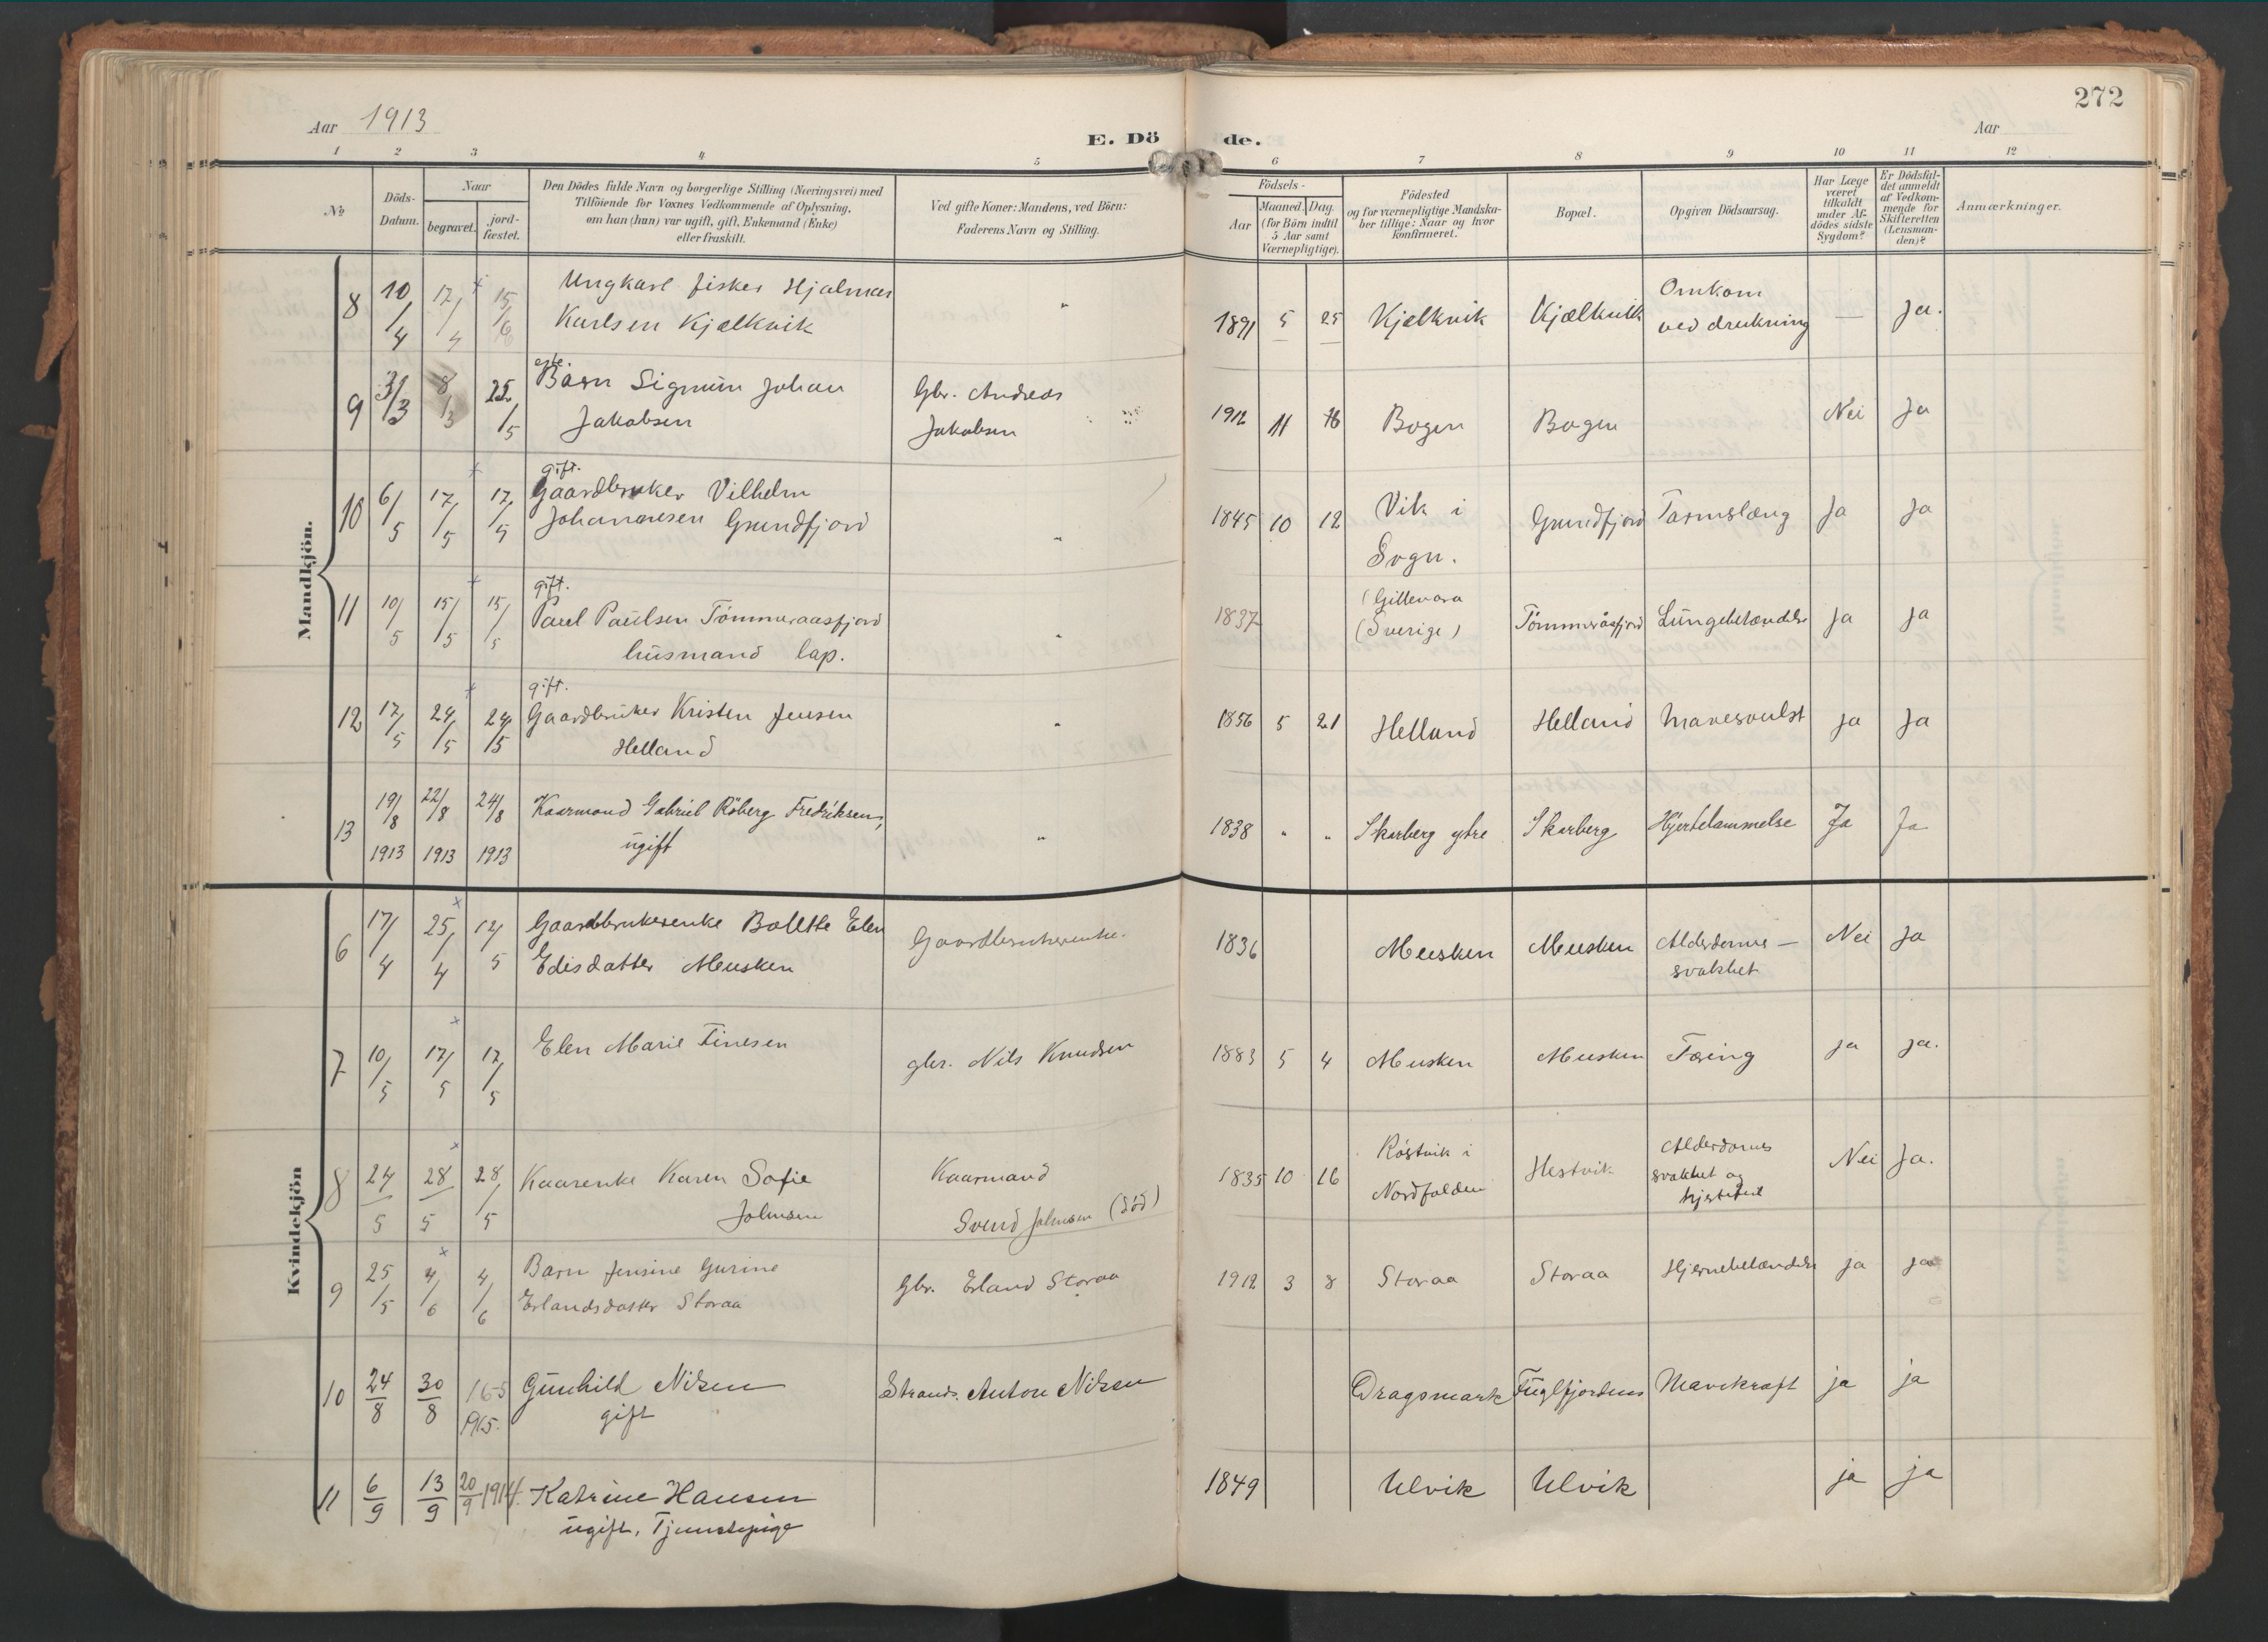 272
Aar 1913
E. Dö de.
Aar
1 2 3 4 5 6 7 8 9 10 11 12
No
Döds-Datum.
Naar
begravet.
jord-fæstet.
Den Dödes fulde Navn og borgerlige Stilling (Næringsvei) med
Tilföiende for Voxnes Vedkommende af Oplysning,
om han (hun) var ugift, gift, Enkemand (Enke)
eller fraskilt.
Ved gifte Koner: Mandens, ved Börn:
Faderens Navn og Stilling.
Födsels-
Aar
Maaned. Dag.
(for Börn indtil
5 Aar samt
Værnepligtige).
Födested
og for værnepligtige Mandska-
ber tillige: Naar og hvor
konfirmeret.
Bopæl.
Opgiven Dödsaarsag.
Har Læge
været
tilkaldt
under Af-
dödes sidste
Sygdom?
Er Dödsfal-
det anmeldt
af Vedkom-
mende for
Skifteretten
(Lensman-
den)?
Anmærkninger.
Mandkjön.
8 10/4 17/4 15/6 Ungkarl fisker Hjalmar
Karlsen Kjælkvik
" 1891 5 25 Kjelkvik Kjælkvik Omkom
ved drukning — Ja.
9 3/3 8/3 25/5 Barn Sigmun Johan
Jakobsen
Gbr. Andreas
Jakobsen
1912 11 16 Bogen Bogen Nei Ja
gift.
10 6/5 17/5 17/5 Gaardbruker Vilhelm
Johannesen Grundfjord
" 1845 10 12 Vik i
Sogn.
Grundfjord Tarmslæng Ja Ja
gift.
11 10/5 15/5 15/5 Paul Paulsen Tömmeraasfjord
husmand lap.
" 1837 (Gillevara
(Sverige)
Tömmeråsfjord Lungebetændelse Ja Ja
gift.
12 17/5 24/5 24/5 Gaardbruker Kristen Jensen
Helland
" 1856 5 21 Helland Helland Mavesvulst Ja Ja
13 19/8 1913 22/8 1913 24/8 1913 Kaarmand Gabriel Röberg Fredriksen,
ugift
" 1838 " " Skarberg ytre Skarberg Hjertelammelse Ja Ja
Kvindekjön
6 17/4 25/4 12/5 Gaardbrukerenke Bolette Elen
Edisdatter Musken
Gaardbrukerenke.
1836 Musken Musken Alderdoms—
svakhet Nei Ja
7 10/5 17/5 17/5 Elen Marie Finesen
gbr. Nils Knudsen
1883 5 4 Musken Musken Tæring ja ja.
8 24/5 28/5 28/5 Kaarenke Karen Sofie
Johnsen
Kaarmand
Svend Johnsen (død)
1835 10 16 Röstvik i
Nordfolden
Hestvik Alderdoms
svakhet og
hjertefeil
Nei Ja.
9 25/5 4/6 4/6 Barn Jensine Gurine
Erlandsdatter Storaa
Gbr. Erland Storaa
1912 3 8 Storaa Storaa Hjernebetændelse ja ja
10 24/8 30/8 16-5 1915. Gunhild Nilsen
gift
Strands. Anton Nilsen
Dragsmark Fuglfjorden Mavekræft ja ja
11 6/9 13/9 20/9 1914. Katrine Hansen
ugift, Tjenestepige
1849 Ulvik Ulvik ja ja